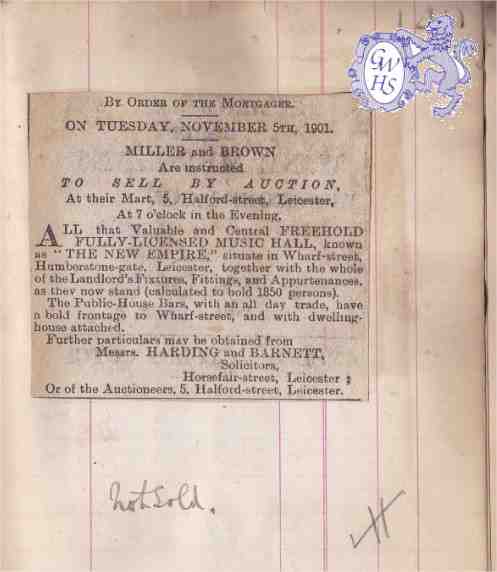 GWHS
BY ORDER OF THE MORTGAGEE.
ON TUESDAY, NOVEMBER 5TH, 1901.
MILLER and BROWN
Are instructed
TO SELL BY AUCTION,
At their Mart, 5, Halford-street, Leicester,
At 7 o'clock in the Evening,
ALL that Valuable and Central FREEHOLD
FULLY-LICENSED MUSIC HALL, known
as "THE NEW EMPIRE," situate in Wharf-street,
Humberstone-gate, Leicester, together with the whole
of the Landlord's Fixtures, Fittings, and Appurtenances,
as they now stand (calculated to hold 1850 persons).
The Public-House Bars, with an all day trade, have
a bold frontage to Wharf-street, and with dwelling-
house attached.
Further particulars may be obtained from
Messrs. HARDING and BARNETT,
Solicitors,
Horsefair-street, Leicester;
Or of the Auctioneers, 5, Halford-street, Leicester.
Not Sold.